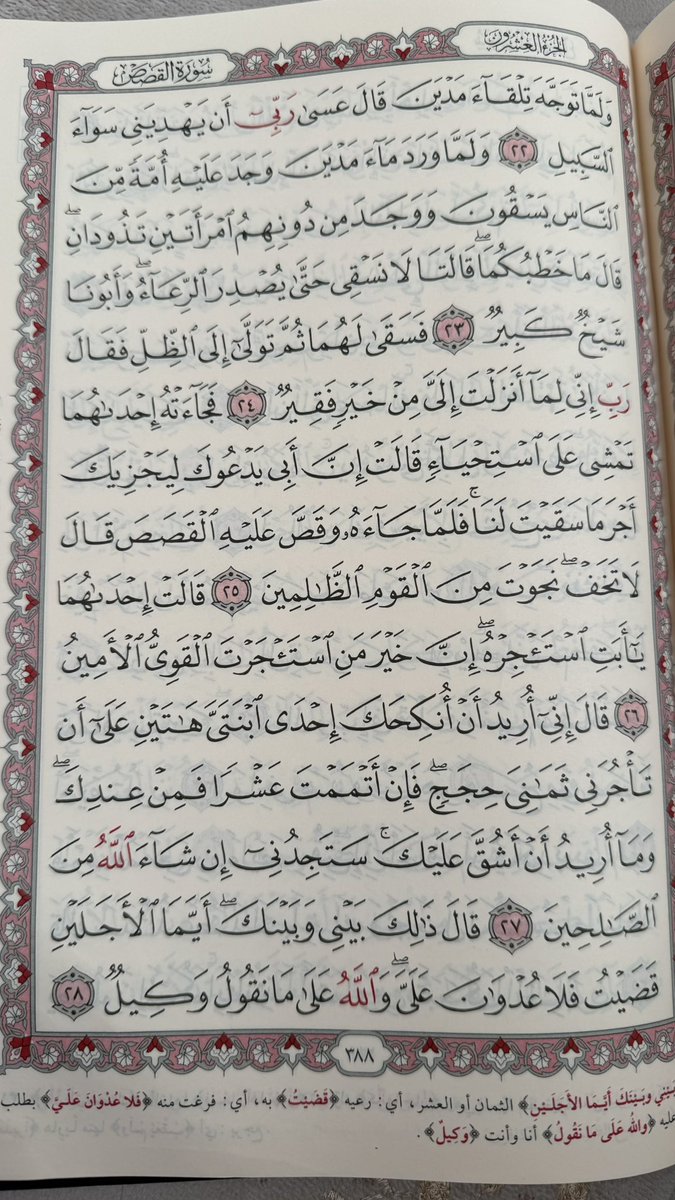 الجزء العشرون
سورة القصص
وَلَمَّا تَوَجَّهَ تِلْقَآءَ مَدْيَنَ قَالَ عَسَىٰ رَبِّىٓ أَن يَهْدِيَنِى سَوَآءَ
ٱلسَّبِيلِ ٢٢ وَلَمَّا وَرَدَ مَآءَ مَدْيَنَ وَجَدَ عَلَيْهِ أُمَّةً مِّنَ
ٱلنَّاسِ يَسْقُونَ وَوَجَدَ مِن دُونِهِمُ ٱمْرَأَتَيْنِ تَذُودَانِۖ
قَالَ مَا خَطْبُكُمَاۖ قَالَتَا لَا نَسْقِى حَتَّىٰ يُصْدِرَ ٱلرِّعَآءُۖ وَأَبُونَا
شَيْخٌ كَبِيرٌ ٢٣ فَسَقَىٰ لَهُمَا ثُمَّ تَوَلَّىٰٓ إِلَى ٱلظِّلِّ فَقَالَ
رَبِّ إِنِّى لِمَآ أَنزَلْتَ إِلَىَّ مِنْ خَيْرٍ فَقِيرٌ ٢٤ فَجَآءَتْهُ إِحْدَىٰهُمَا
تَمْشِى عَلَى ٱسْتِحْيَآءٍ قَالَتْ إِنَّ أَبِى يَدْعُوكَ لِيَجْزِيَكَ
أَجْرَ مَا سَقَيْتَ لَنَاۚ فَلَمَّا جَآءَهُۥ وَقَصَّ عَلَيْهِ ٱلْقَصَصَ قَالَ
لَا تَخَفْۖ نَجَوْتَ مِنَ ٱلْقَوْمِ ٱلظَّٰلِمِينَ ٢٥ قَالَتْ إِحْدَىٰهُمَا
يَٰٓأَبَتِ ٱسْتَـْٔجِرْهُۖ إِنَّ خَيْرَ مَنِ ٱسْتَـْٔجَرْتَ ٱلْقَوِىُّ ٱلْأَمِينُ
٢٦ قَالَ إِنِّىٓ أُرِيدُ أَنْ أُنكِحَكَ إِحْدَى ٱبْنَتَىَّ هَٰتَيْنِ عَلَىٰٓ أَن
تَأْجُرَنِى ثَمَٰنِىَ حِجَجٍۖ فَإِنْ أَتْمَمْتَ عَشْرًا فَمِنْ عِندِكَۖ
وَمَآ أُرِيدُ أَنْ أَشُقَّ عَلَيْكَۚ سَتَجِدُنِىٓ إِن شَآءَ ٱللَّهُ مِنَ
ٱلصَّٰلِحِينَ ٢٧ قَالَ ذَٰلِكَ بَيْنِى وَبَيْنَكَۖ أَيَّمَا ٱلْأَجَلَيْنِ
قَضَيْتُ فَلَا عُدْوَٰنَ عَلَىَّۖ وَٱللَّهُ عَلَىٰ مَا نَقُولُ وَكِيلٌ ٢٨
٣٨٨
بَيْنِي وَبَيْنَكَ أَيَّمَا الأَجَلَيْنِ﴾ الثمان أو العشر، أي: رعيه ﴿قَضَيْتُ﴾ به، أي: فرغت منه ﴿فَلا عُدْوَانَ عَلَيَّ﴾ بطلب
عليه ﴿وَاللهُ عَلَى مَا نَقُولُ﴾ أنا وأنت ﴿وَكِيلٌ﴾.